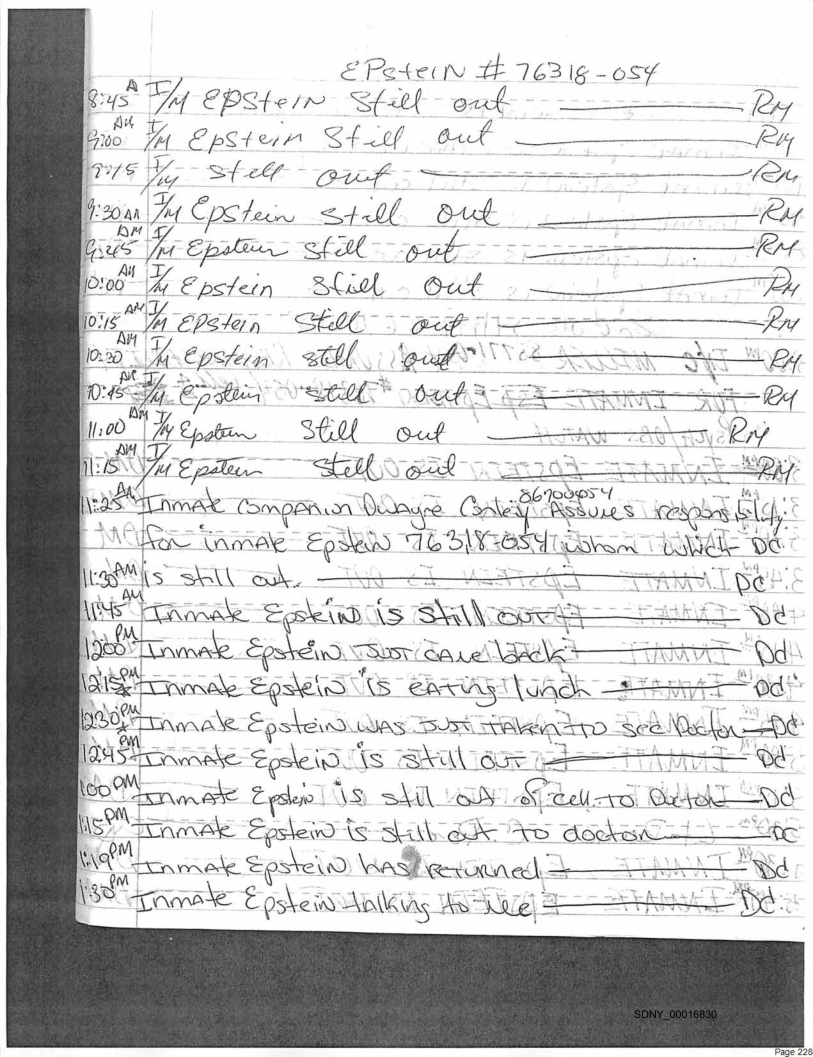 EPsteiN # 76318-054
8:45 A I/M EPStein Still out RM
9:00 AM I/M Epstein Still out RM
9:15 I/M still out RM
9:30 AM I/M EpStein still out RM
9:45 AM I/M Epstein still out RM
10:00 AM I/M Epstein Still out RM
10:15 AM I/M EPStein Still out RM
10:30 AM I/M Epstein still out RM
10:45 AM I/M Epstein still out RM
11:00 AM I/M Epstein Still out RM
11:15 AM I/M Epstein Still out RM
11:25 AM Inmate Companion Dwayne 86700054 Assures responsibility
for inmate Epstein 76318-054 whom which DC
11:30 AM is still out. DC
11:45 AM Inmate Epstein is still out DC
1200 PM Inmate Epstein Just came back DC
12:15 PM * Inmate Epstein is eating lunch DC
12:30 PM * Inmate Epstein was Just taken to see Doctor DC
12:45 PM Inmate Epstein is still out DC
1:00 PM Inmate Epstein is still out of cell to Doctor DC
1:15 PM Inmate Epstein is still out to doctor DC
1:19 PM Inmate Epstein has returned DC
1:30 PM Inmate Epstein talking to me DC
SDNY_00016830
Page 228